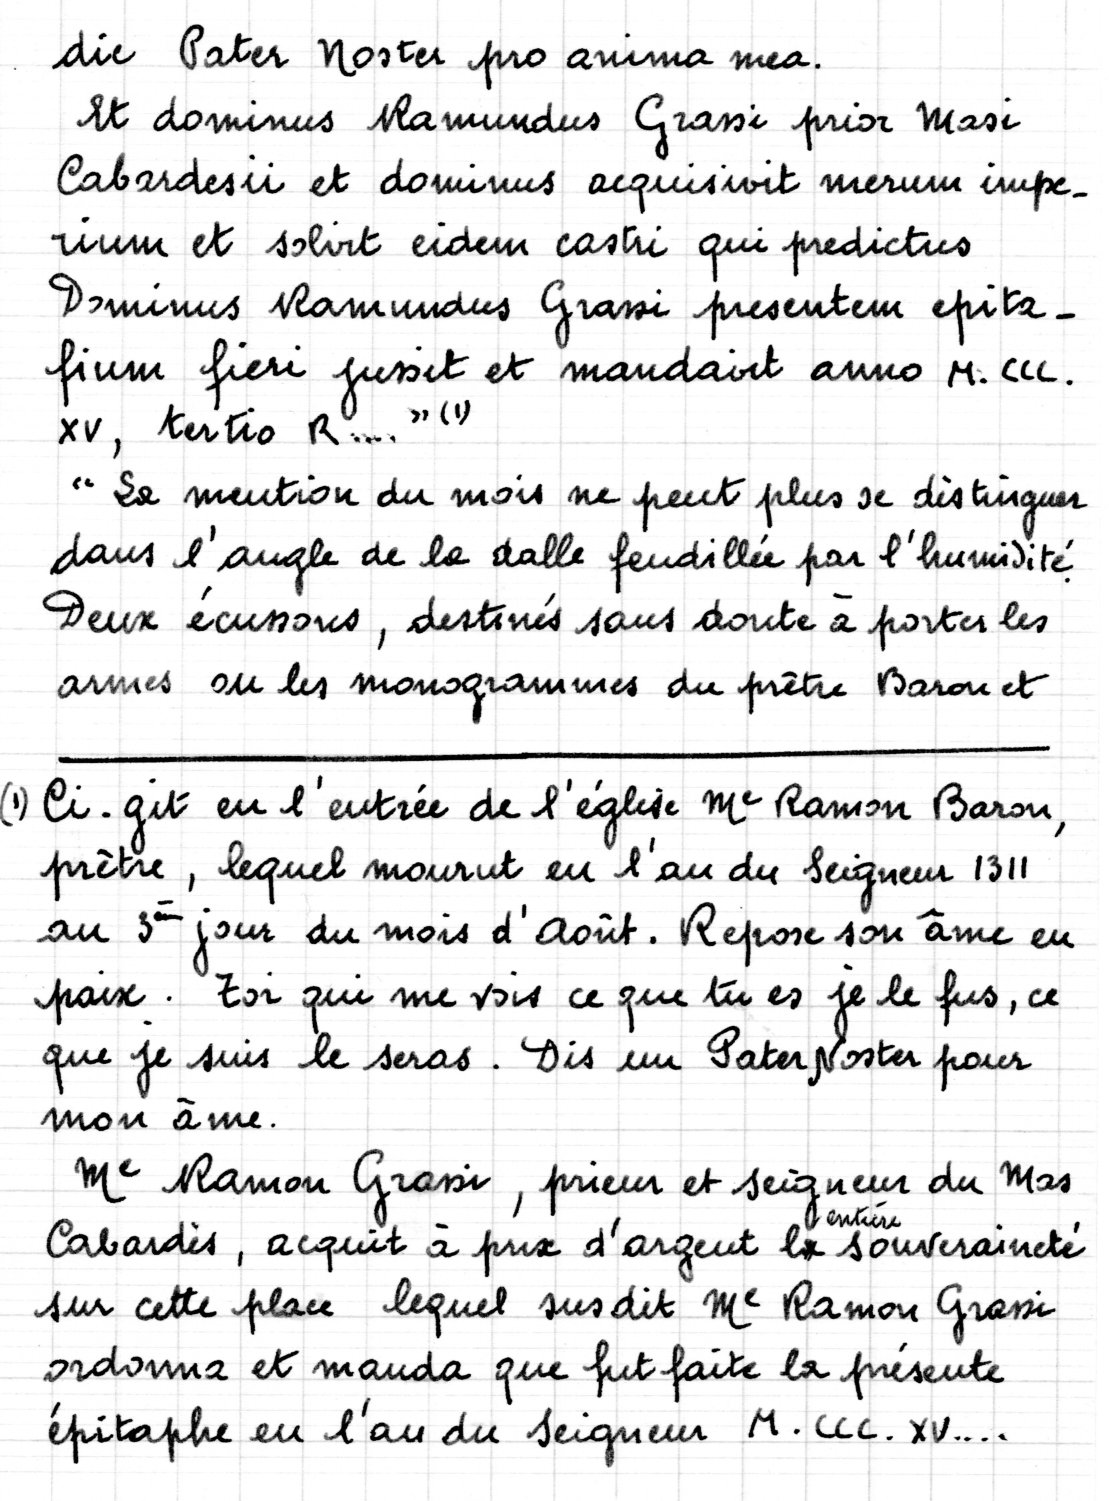 dic Pater Noster pro anima mea.
Et dominus Ramundus Grassi prior Masi
Cabardesii et dominus acquisivit merum impe-
rium et solvit eidem castri qui predictus
Dominus Ramundus Grassi presentem epita-
fium fieri jussit et mandavit anno M. CCC.
XV, tertio R.... " (1)
" La mention du mois ne peut plus se distinguer
dans l'angle de la dalle feudillée par l'humidité.
Deux écussons, destinés sans doute à porter les
armes ou les monogrammes du prêtre Baron et
(1) Ci-gît en l'entrée de l'église Me Ramon Baron,
prêtre, lequel mourut en l'an du Seigneur 1311
au 3e jour du mois d'Août. Repose son âme en
paix. Toi qui me vois ce que tu es je le fus, ce
que je suis le seras. Dis un Pater Noster pour
mon âme.
Me Ramon Grassi, prieur et seigneur du Mas
Cabardès, acquit à prix d'argent la entière souveraineté
sur cette place lequel susdit Me Ramon Grassi
ordonna et manda que fut faite la présente
épitaphe en l'an du Seigneur M. CCC. XV....